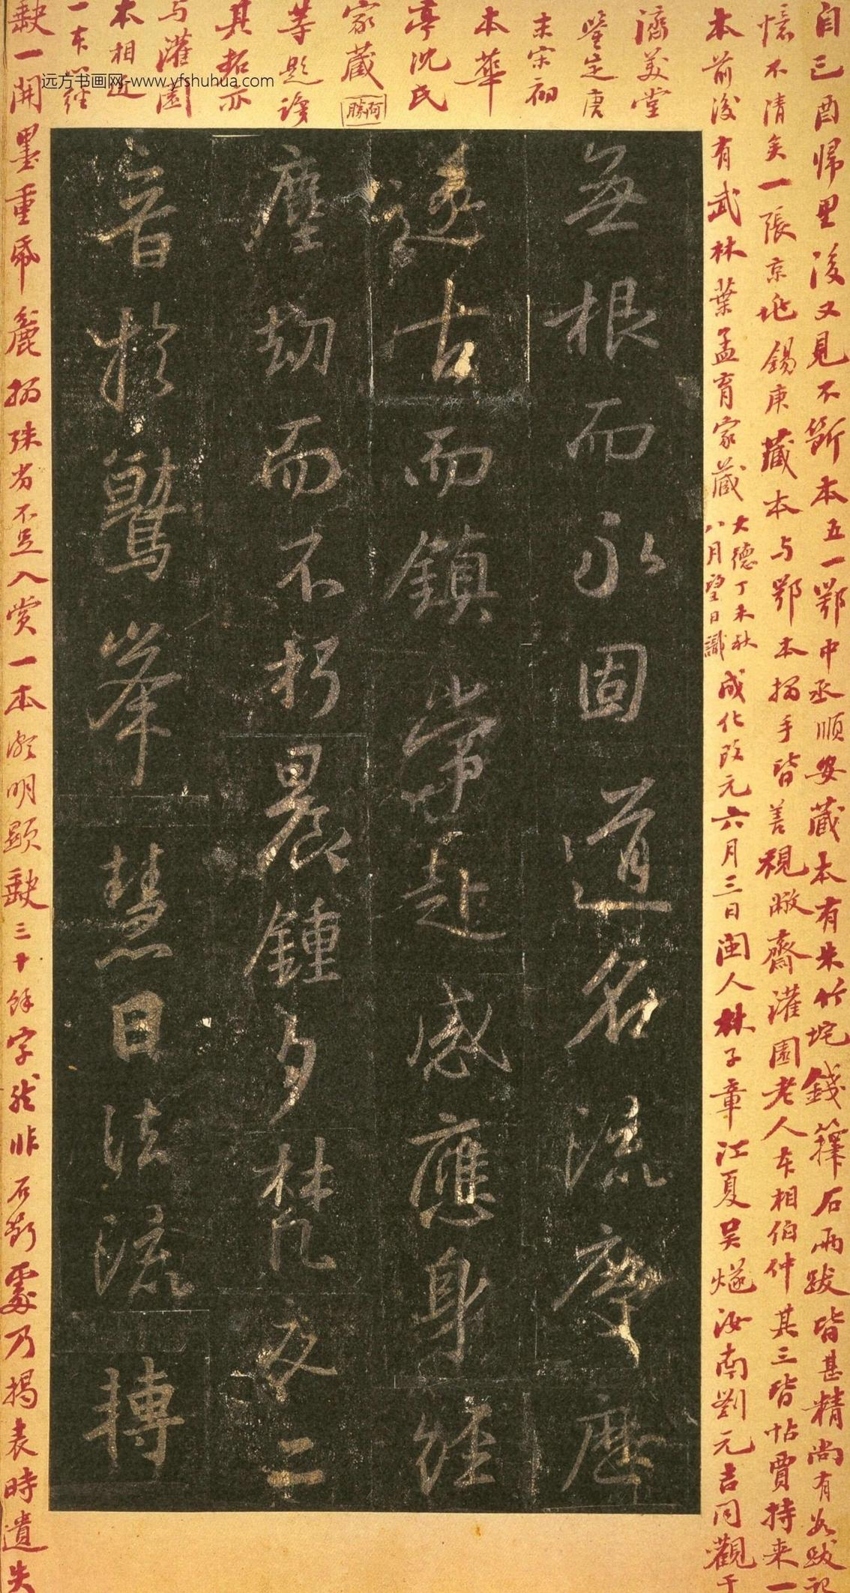 自己酉歸里後又見不斷本五一鄂中丞順安藏本有朱竹垞錢籜石兩跋皆甚精尚有數跋記
憶不清矣一張京兆錫庚藏本与鄂本搨手皆善視緻齋灌園老人本相伯仲其三皆帖賈持来一
本前後有武林葉孟育家藏大德丁未秋八月望日識成化改元六月三日閩人林子章江夏吴燧汝南劉元吉同觀于
濟美堂
鑒定唐
末宋初
本華
亭沈氏
家藏
等題識
其拓亦
与灌園
本相近
一本經
缺一開墨重帋麄搨殊省不足入赏一本亦明顯缺三十餘字然非石斷處乃揭表時遺失
無根而永固道名流慶歷
遂古而鎮常赴感應身經
塵劫而不朽晨鐘夕梵交二
音於鷲峯慧日法流轉
远方书画网-www.yfshuhua.com